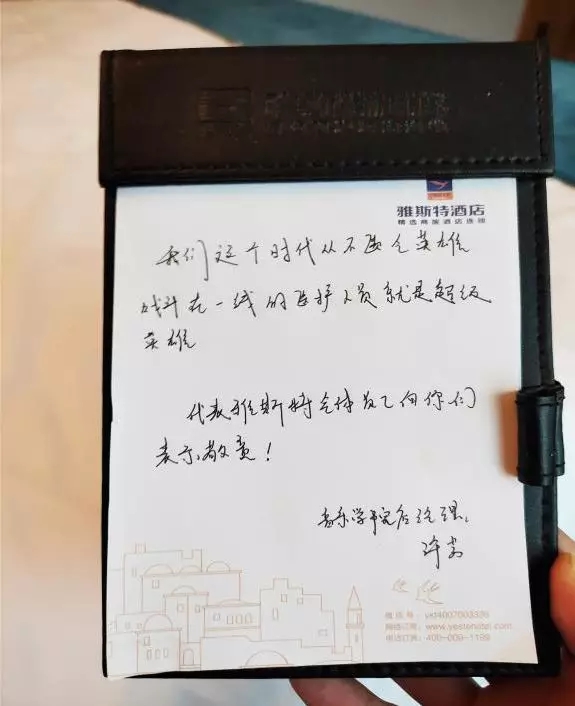 雅斯特酒店
精选商旅酒店连锁
我们这个时代从不匮乏英雄
战斗在一线的医护人员就是超级
英雄
代表雅斯特全体员工向你们
表示敬意!
音乐学院店经理:
许
微信号:yst4007003339
网络订房:www.yesterhotel.com
电话订房:400-009-1199